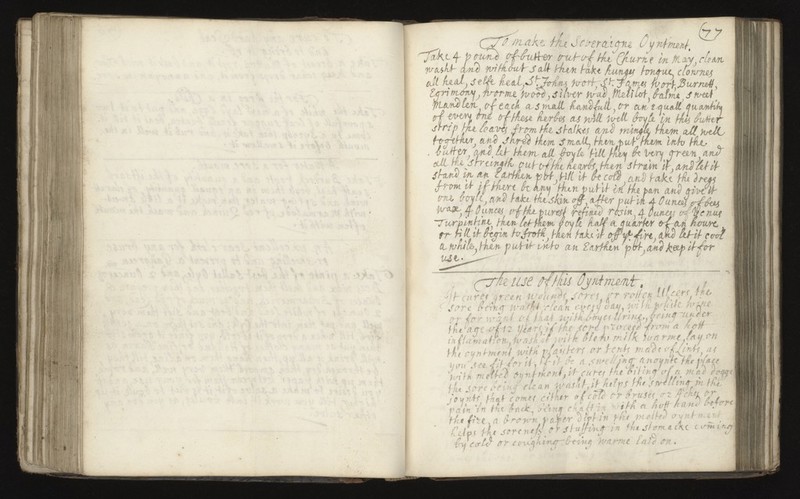 77
To make the Soveraigne Oyntment.
Take 4 pound of butter out of the Churne in May, clean
washt and without salt then take hunges tongue, clownes
all heal, selfe heal, St Johns wort, St James wort, Burnett,
Egrimony, broome wood, silver wad, Mellilot, balme, sweet
Mandlen, of each a small handfull, or an equall quantity
of every one of these herbes as will well boyle in this butter
strip the leaves from the stalkes and mingle them all well
together, and shred them small, then put them into the
butter, and let them all boyle till they be very green, and
all the streingth out of the hearbs, then strain it, and let it
stand in an Earthen pot, till it be cold and take the dregs
from it if there be any then put it in the pan and give it
one boyle, and take the skin off, after put in 4 Ounces of bees
wax, 4 Ounces of the purest refined rosin, 4 Ounces of Venus
Turpintine, then let them boyle half a quarter of an houre
or till it begin to froth, then take it off ye fire, and let it cool
a while, then put it into an Earthen pot, and keep it for
use.
The use of this Oyntment.
It cures green wounds, sores, or rotten Ulcers, the
sore being washt clean every day, with white wine
or for want of that with boyes Urine, being under
the age of 12 years, if the sore proceed from a hott
inflamation, wash it with blew milk warme, lay on
the oyntment, with plaisters or tents made of lint, as
you see fit for it, if it be a swelling anoynte the place
with melted oyntment, it cures the biting of a mad dogge
the sore being clean washt, it helps the swelling in the
joynts, that comes either of cold or bruses or Aches, or
pain in the back, being chaffed with a hott hand before
the fire, a brown paper dipt in the melted oyntment
helps the sorenefs or stuffing in the stomacke coming
by cold or coughing being warme laid on.